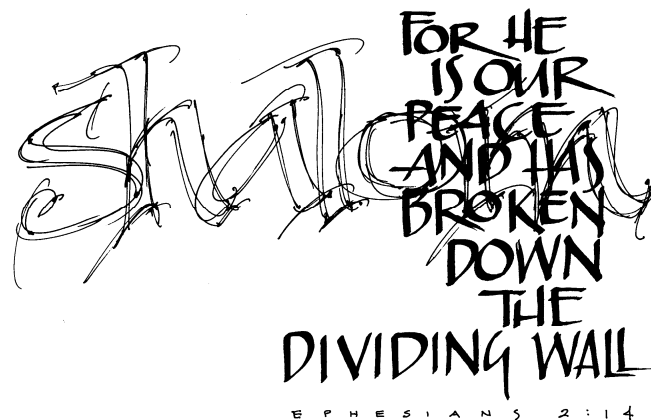 shalom
FOR HE
IS OUR
PEACE
AND HAS
BROKEN
DOWN
THE
DIVIDING WALL
EPHESIANS 2:14